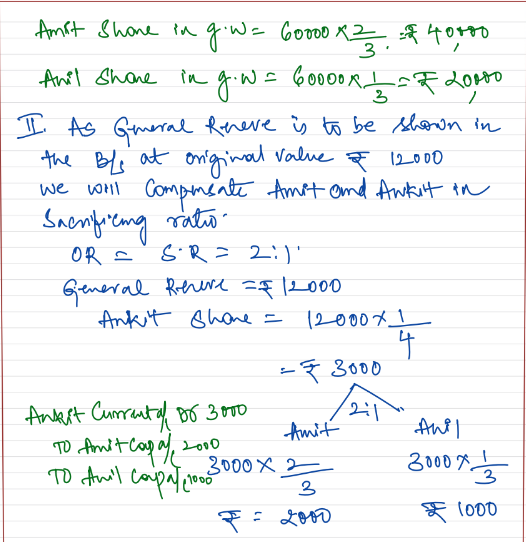 Amit Share in g.w = 60000 x 2/3 = ₹ 40,000
Anil Share in g.w = 60000 x 1/3 = ₹ 20,000
II. As General Reserve is to be shown in
the B/s at original value ₹ 12000
we will Compensate Amit and Ankit in
Sacrificing ratio.
OR = S.R = 2:1
General Reserve = ₹ 12000
Ankit Share = 12000 x 1/4
= ₹ 3000
2:1
Ankit Current a/c Dr 3000
To Amit Cap a/c 2000
To Anil Cap a/c 1000
Amit
3000 x 2/3
₹ = 2000
Anil
3000 x 1/3
₹ 1000